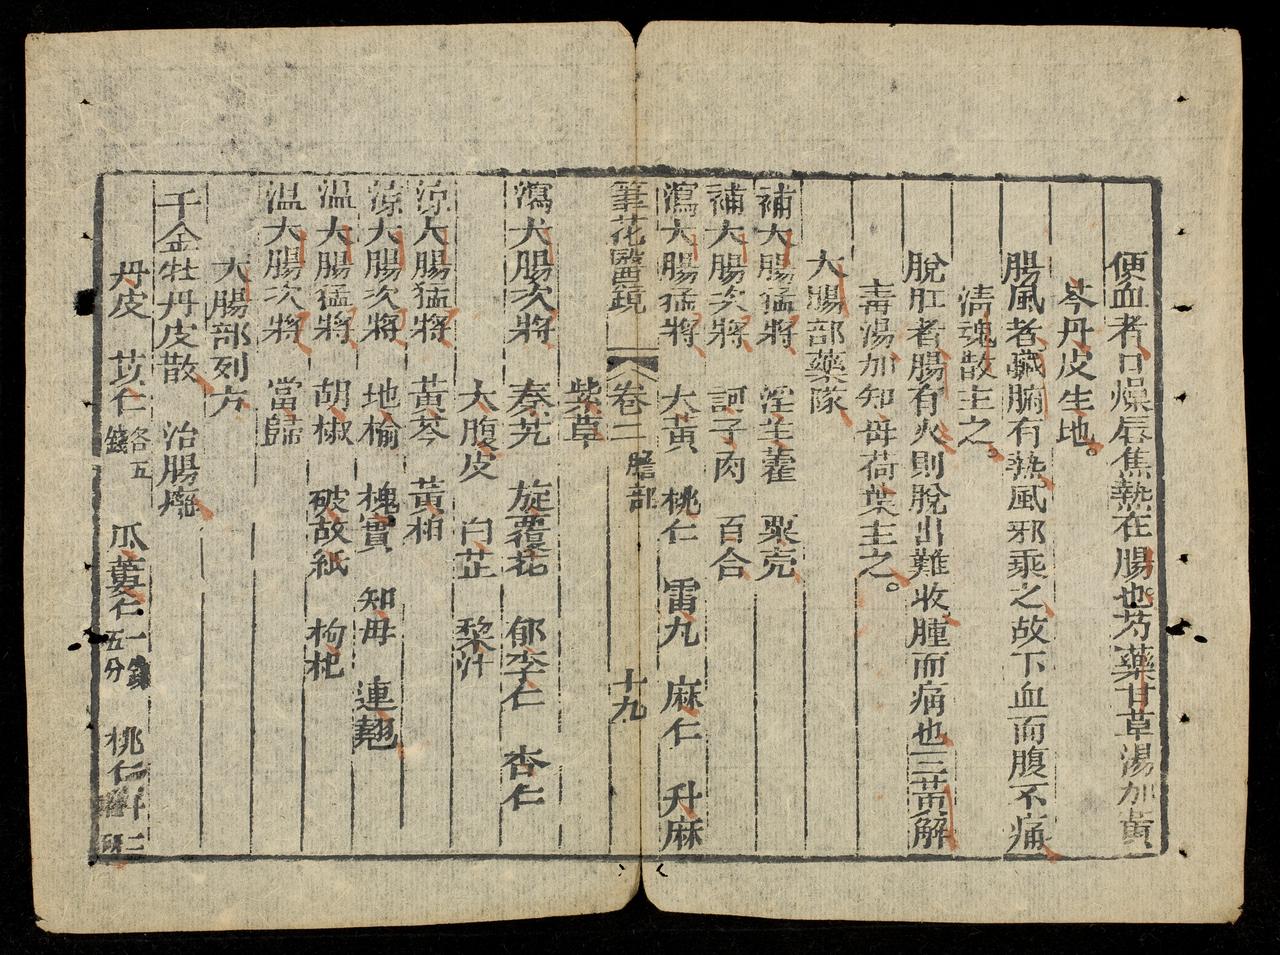 便血者口燥唇焦熱在腸也芍藥甘草湯加黃
芩丹皮生地。
腸風者臟腑有熱風邪乘之故下血而腹不痛
清魂散主之。
脫肛者腸有火則脫出難收腫而痛也三黃解
毒湯加知母荷葉主之。
大腸部藥隊
補大腸猛將 淫羊藿 粟壳
補大腸次將 訶子肉 百合
瀉大腸猛將 大黃 桃仁 雷丸 麻仁 升麻
筆花醫鏡 卷二 膽部 十九
紫草
瀉大腸次將 秦艽 旋覆花 郁李仁 杏仁
大腹皮 白芷 梨汁
涼大腸猛將 黃芩 黃柏
涼大腸次將 地榆 槐實 知母 連翹
溫大腸猛將 胡椒 破故紙 枸杞
溫大腸次將 當歸
大腸部列方
千金牡丹皮散 治腸癰
丹皮 苡仁各五錢 瓜蔞仁一錢五分 桃仁